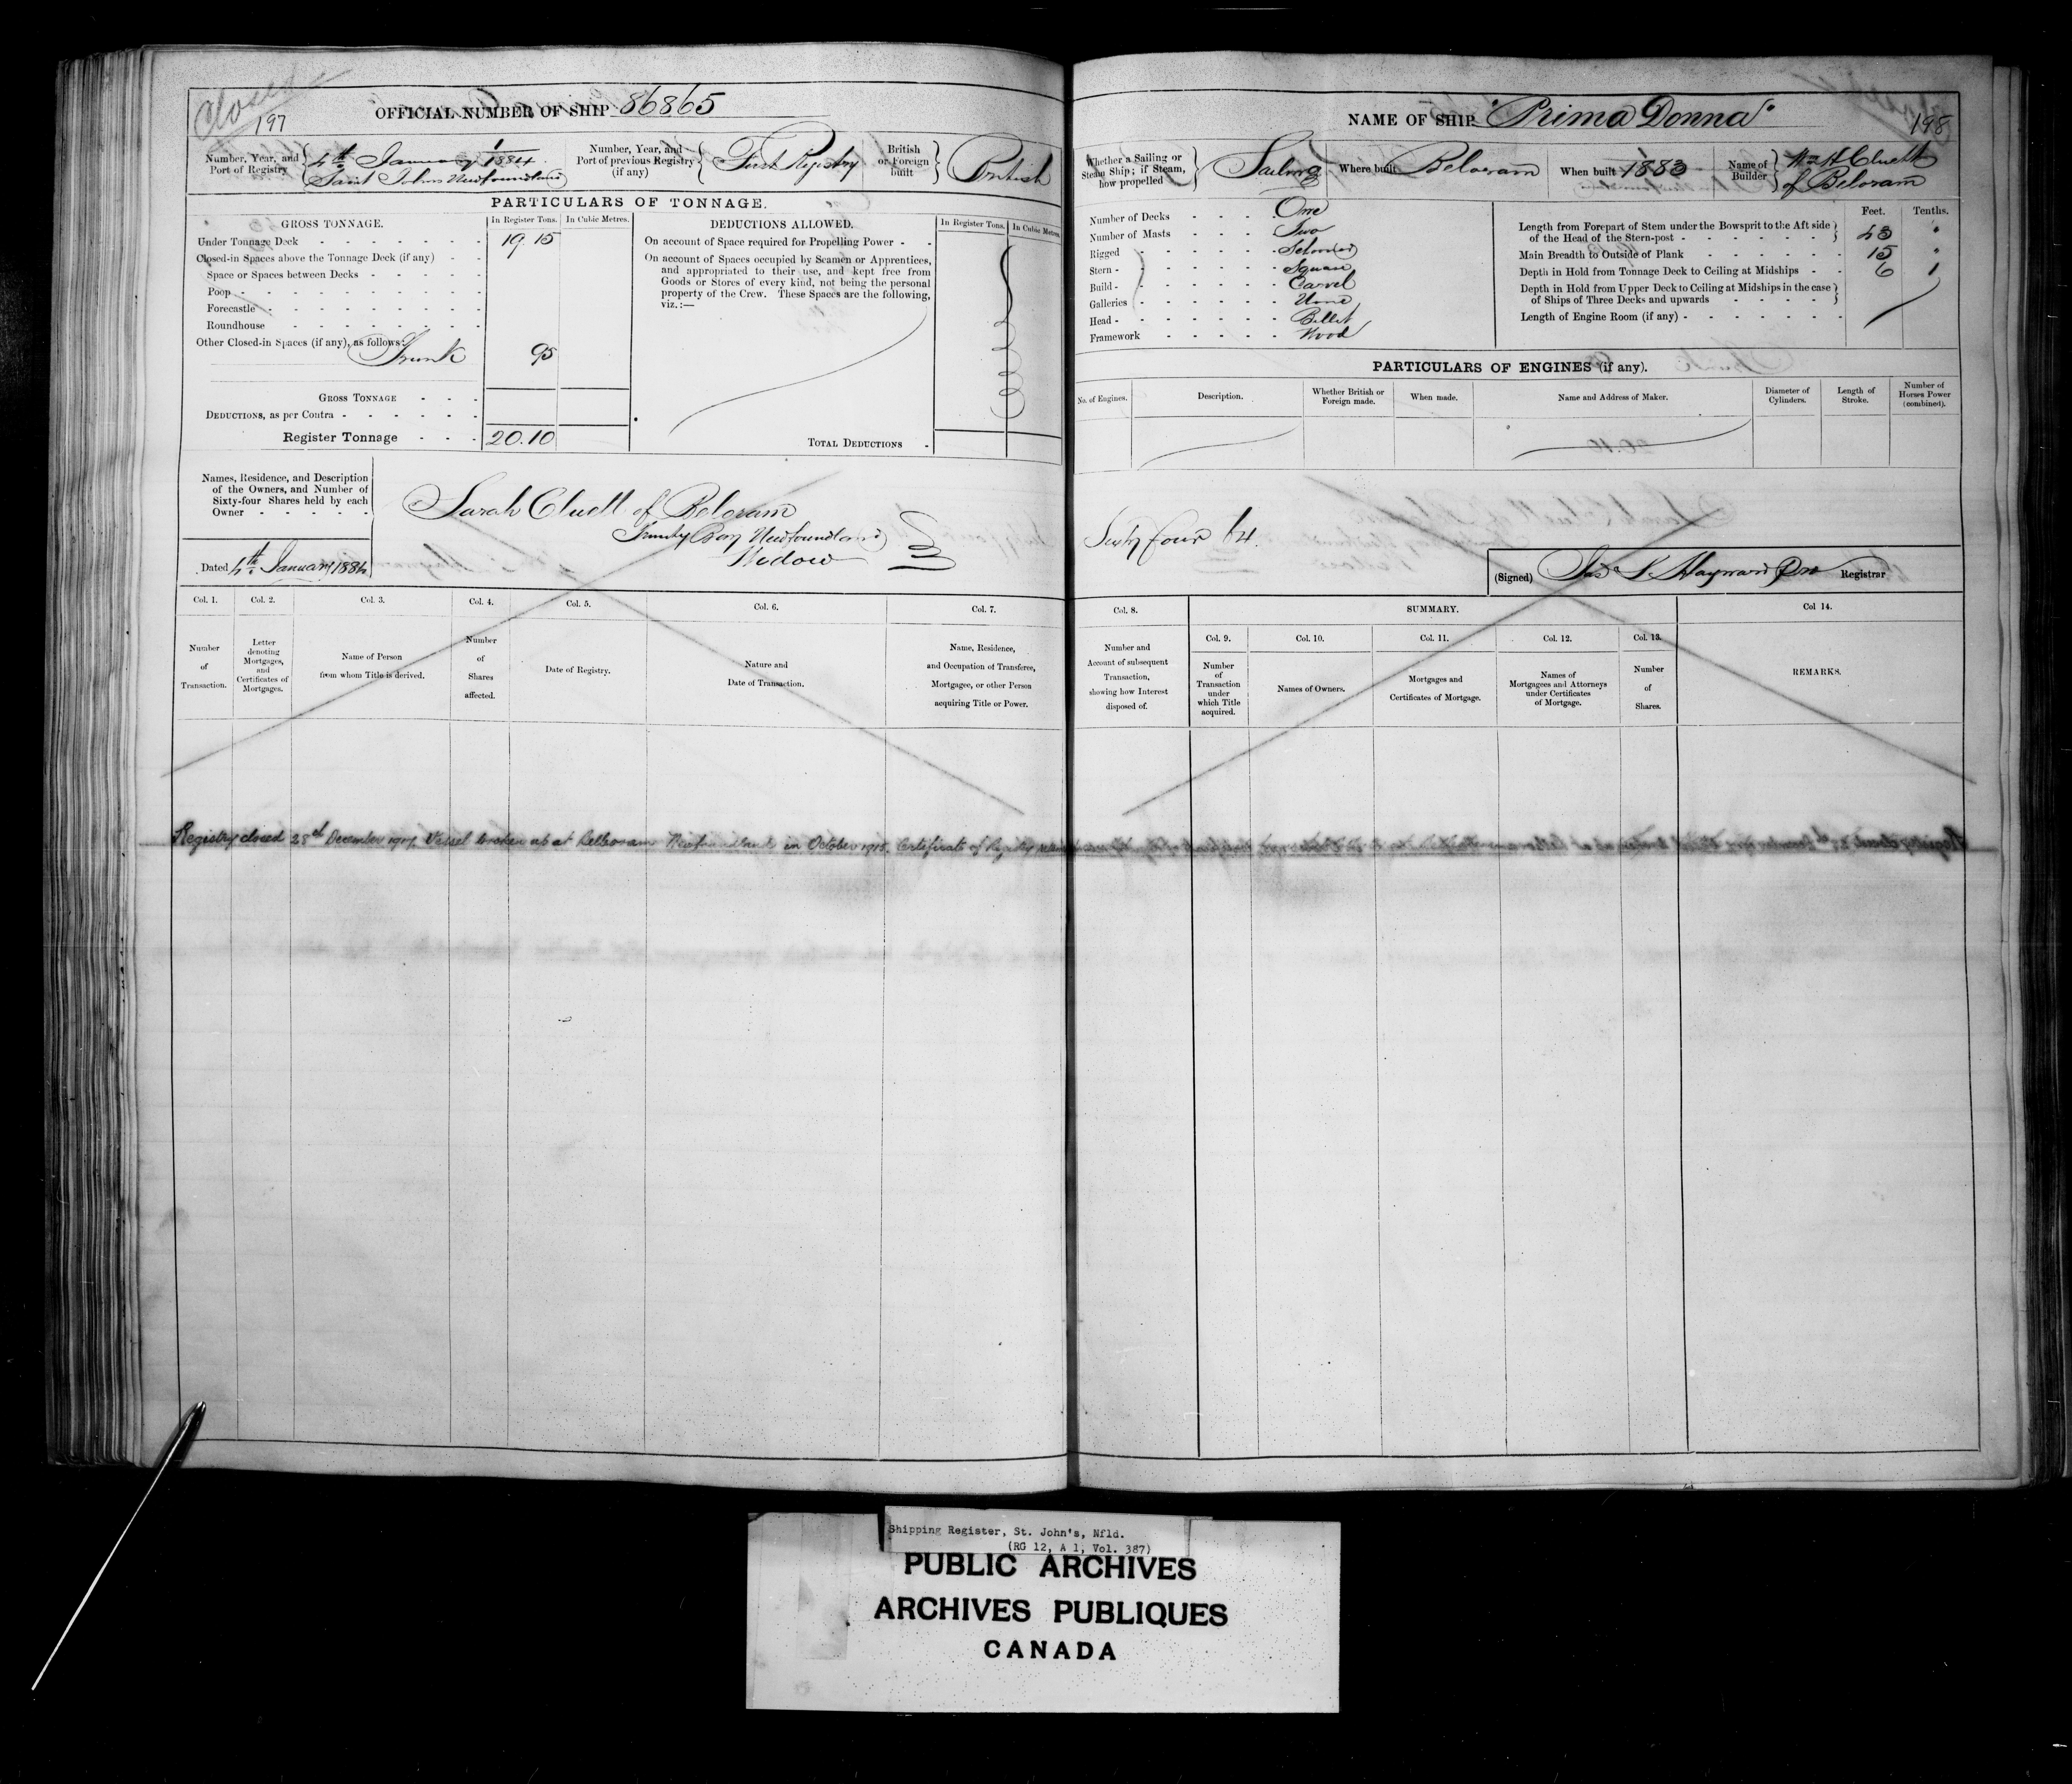 Closed
197
OFFICIAL NUMBER OF SHIP 86865
Number, Year, and Port of Registry
4th January 1/1884
Saint Johns Newfoundland
Number, Year, and Port of previous Registry (if any)
First Registry
British or Foreign built
British
PARTICULARS OF TONNAGE.
GROSS TONNAGE.
In Register Tons.
In Cubic Metres.
Under Tonnage Deck 19.15
Closed-in Spaces above the Tonnage Deck (if any)
Space or Spaces between Decks
Poop
Forecastle
Roundhouse
Other Closed-in Spaces (if any), as follows:
Trunk 95
GROSS TONNAGE
DEDUCTIONS, as per Contra
Register Tonnage 20.10
DEDUCTIONS ALLOWED.
In Register Tons.
In Cubic Metres.
On account of Space required for Propelling Power
On account of Spaces occupied by Seamen or Apprentices,
and appropriated to their use, and kept free from
Goods or Stores of every kind, not being the personal
property of the Crew. These Spaces are the following,
viz.:—
TOTAL DEDUCTIONS
Names, Residence, and Description
of the Owners, and Number of
Sixty-four Shares held by each
Owner
Sarah Cluett of Beloram
Trinity Bay Newfoundland
Widow
Dated 4th January 1884
Col. 1.
Number
of
Transaction.
Col. 2.
Letter
denoting
Mortgages,
and
Certificates of
Mortgages.
Col. 3.
Name of Person
from whom Title is derived.
Col. 4.
Number
of
Shares
affected.
Col. 5.
Date of Registry.
Col. 6.
Nature and
Date of Transaction.
Col. 7.
Name, Residence,
and Occupation of Transferee,
Mortgagee, or other Person
acquiring Title or Power.
Registry closed 28th December Vessel broken up at Belleoram Newfoundland in October Certificate of Registry
NAME OF SHIP "Prima Donna"
198
Whether a Sailing or
Steam Ship; if Steam,
how propelled
Sailing
Where built Beloram
When built 1883
Name of Builder
Wm H Cluett
of Beloram
Number of Decks One
Number of Masts Two
Rigged Schooner
Stern Square
Build Carvel
Galleries None
Head Billet
Framework Wood
Feet. Tenths.
Length from Forepart of Stem under the Bowsprit to the Aft side
of the Head of the Stern-post 43 "
Main Breadth to Outside of Plank 15 "
Depth in Hold from Tonnage Deck to Ceiling at Midships 6 1
Depth in Hold from Upper Deck to Ceiling at Midships in the case
of Ships of Three Decks and upwards
Length of Engine Room (if any)
PARTICULARS OF ENGINES (if any).
No. of Engines.
Description.
Whether British or
Foreign made.
When made.
Name and Address of Maker.
Diameter of
Cylinders.
Length of
Stroke.
Number of
Horses Power
(combined).
Sixty four 64.
(Signed) Registrar
Col. 8.
Number and
Account of subsequent
Transaction,
showing how Interest
disposed of.
SUMMARY.
Col. 9.
Number
of
Transaction
under
which Title
acquired.
Col. 10.
Names of Owners.
Col. 11.
Mortgages and
Certificates of Mortgage.
Col. 12.
Names of
Mortgagees and Attorneys
under Certificates
of Mortgage.
Col. 13.
Number
of
Shares.
Col 14.
REMARKS.
Shipping Register, St. John's, Nfld.
(RG 12, A 1, Vol. 387)
PUBLIC ARCHIVES
ARCHIVES PUBLIQUES
CANADA